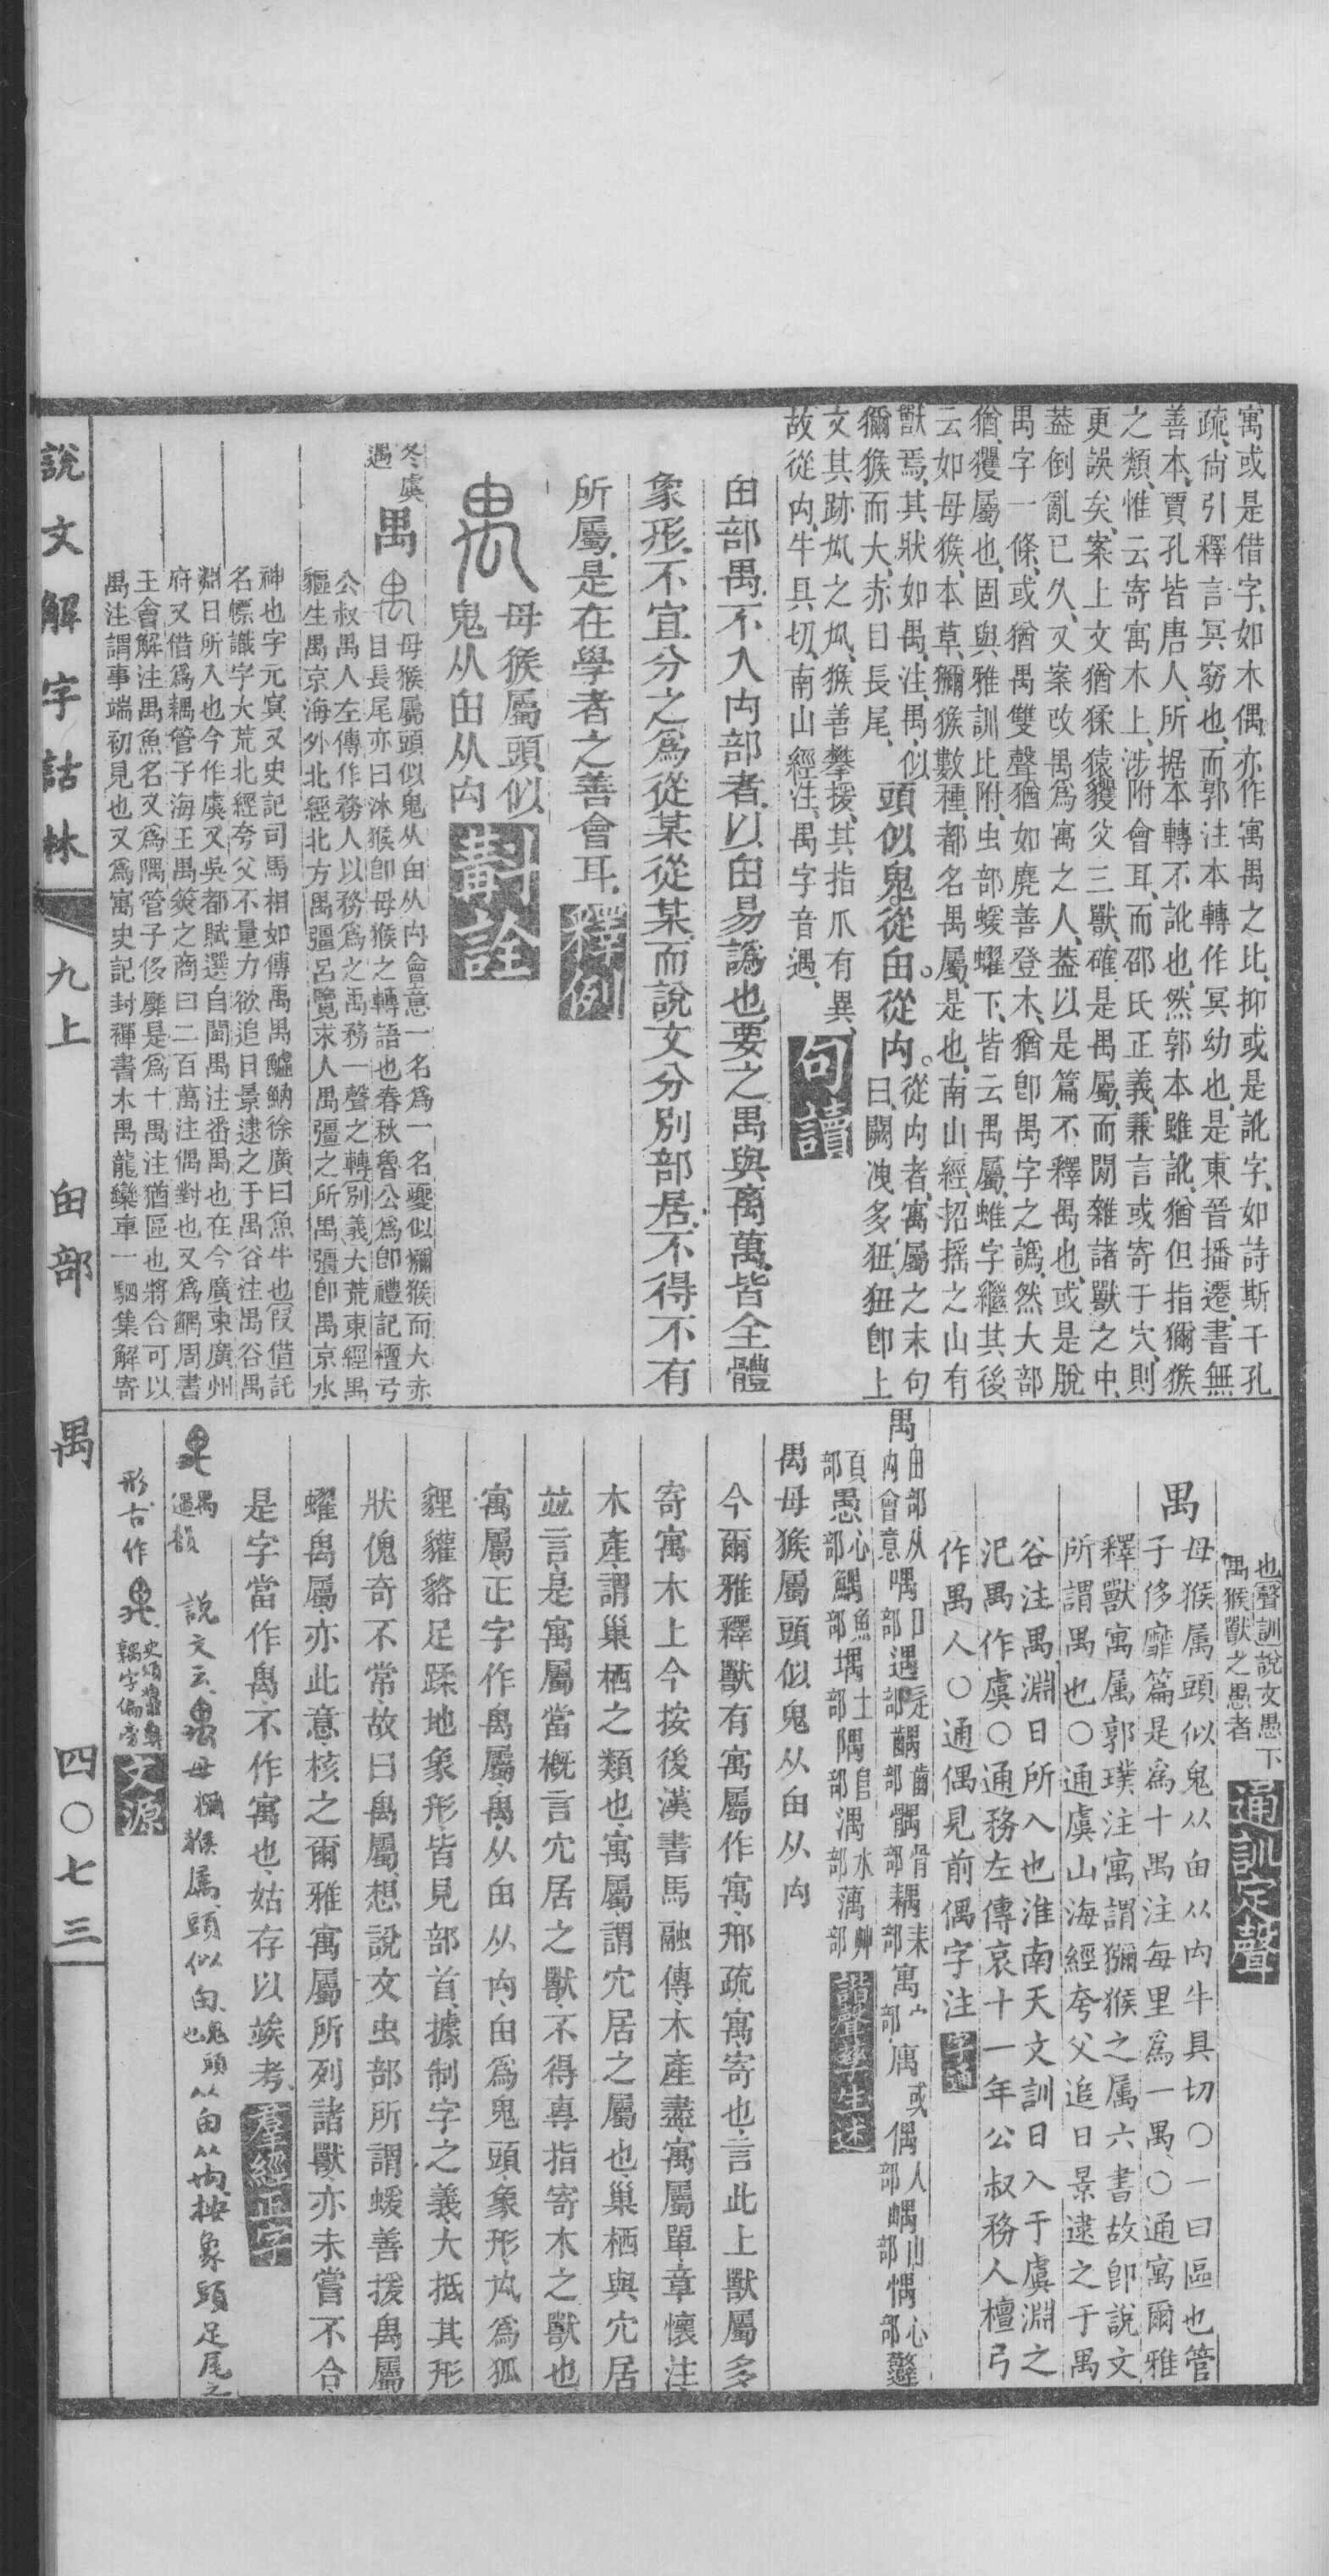 寓或是借字、如木偶亦作寓禺之比、抑或是訛字、如詩斯干孔
疏、尙引釋言冥窈也、而郭注本轉作冥幼也、是東晉播遷、書無
善本、賈孔皆唐人、所据本轉不訛也、然郭本雖訛、猶但指獼猴
之類、惟云寄寓木上、涉附會耳、而邵氏正義、兼言或寄于穴、則
更誤矣、案上文猶猱猿玃父三獸、確是禺屬、而閒雜諸獸之中、
蓋倒亂已久、又案改禺爲寓之人、蓋以是篇不釋禺也、或是脫
禺字一條、或猶禺雙聲、猶如麂善登木、猶卽禺字之譌、然大部
猶、玃屬也、固與雅訓比附、虫部蝯蠗下、皆云禺屬、蜼字繼其後
云如母猴、本草、獼猴數種、都名禺屬、是也、南山經、招搖之山有
獸焉、其狀如禺、注、禺似獼猴而大、赤目長尾、
頭似鬼。從甶從禸。
從禸者、寓屬之末句曰、闕洩多狃、狃卽上
文其跡厹之厹、猴善攀援、其指爪有異、
故從禸、牛具切、南山經注、禺字音遇、
句讀
甶部禺、不入禸部者、以甶易譌也、要之禺與禼萬、皆全體
象形、不宜分之爲從某從某、而說文分別部居、不得不有
所屬、是在學者之善會耳、
釋例
母猴屬頭似
鬼从甶从禸
斠詮
冬虞
遇
禺
母猴屬頭似鬼从甶从禸會意一名爲一名夒似獼猴而大赤
目長尾亦曰沐猴卽母猴之轉語也春秋魯公爲卽禮記檀弓
公叔禺人左傳作務人以務爲之禺務一聲之轉別義大荒東經禺
䝞生禺京海外北經北方禺彊呂覽求人禺彊之所禺彊卽禺京水
神也字元冥又史記司馬相如傳禺禺鱋魶徐廣曰魚牛也叚借託
名幖識字大荒北經夸父不量力欲追日景逮之于禺谷注禺谷禺
淵日所入也今作虞又吳都賦選自閩禺注番禺也在今廣東廣州
府又借爲耦管子海王禺筴之商日二百萬注偶對也又爲鰅周書
王會解注禺魚名又爲隅管子侈靡是爲十禺注猶區也將合可以
禺注謂事端初見也又爲寓史記封禪書木禺龍欒車一駟集解寄
也聲訓說文愚下
禺猴獸之愚者
通訓定聲
禺
母猴属頭似鬼从甶从禸牛具切○一曰區也管
子侈靡篇是爲十禺注每里爲一禺○通寓爾雅
釋獸寓属郭璞注寓謂獼猴之属六書故卽說文
所謂禺也○通虞山海經夸父追日景逮之于禺
谷注禺淵日所入也淮南天文訓日入于虞淵之
汜禺作虞○通務左傳哀十一年公叔務人檀弓
作禺人○通偶見前偶字注
字通
禺
甶部从
禸會意
喁口部遇辵部齵齒部髃骨部耦耒部寓宀部㝢或偶人部嵎山部愚心部䠱
頁部愚心部鰅魚部堣土部隅𨸏部湡水部蕅艸部
諧聲孳生述
禺母猴屬頭似鬼从甶从禸
今爾雅釋獸有寓屬作寓、邢疏、寓、寄也、言此上獸屬多
寄寓木上、今按後漢書馬融傳、木產盡、寓屬單、章懷注、
木產、謂巢栖之類也、寓屬、謂穴居之屬也、巢栖與穴居
並言、是寓屬當槪言穴居之獸、不得專指寄木之獸也、
寓屬、正字作禺屬、禺、从甶从禸、甶爲鬼頭、象形、厹爲狐
貍貛貉足蹂地象形、皆見部首、據制字之義、大抵其形
狀傀奇不常、故曰禺屬、想說文虫部所謂蝯善援禺屬、
蠗禺屬、亦此意、核之爾雅寓屬所列諸獸、亦未嘗不合、
是字當作禺、不作寓也、姑存以竢考、
羣經正字
禺
遇韻
說文云、母獼猴属、頭似甶、鬼頭也、从甶从禸、按象頭足尾之
形、古作史頌𣪘
耦字偏旁
文源
說文解字詁林
九上
甶部
禺
四〇七三